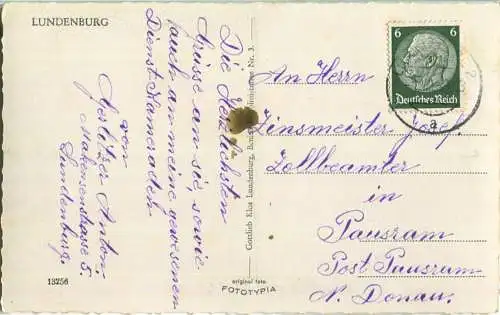 LUNDENBURG
Die Herzlichsten
Grüsse an sie, sowie
auch an meine gewesenen
Dienst Kameraden.
von
Anton
Makensenstrasse 5.
Lundenburg.
13256
Gottlieb Klos Lundenburg,
Nr. 3.
original foto
FOTOTYPIA
6 6
Deutsches Reich
a
An Herrn
Zinsmeister Josef
Zollbeamter
in
Pausram
Post Pausram
N. Donau.